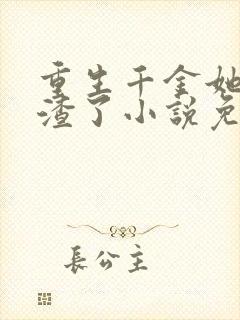 重生千金她
渣了小説免
長公主